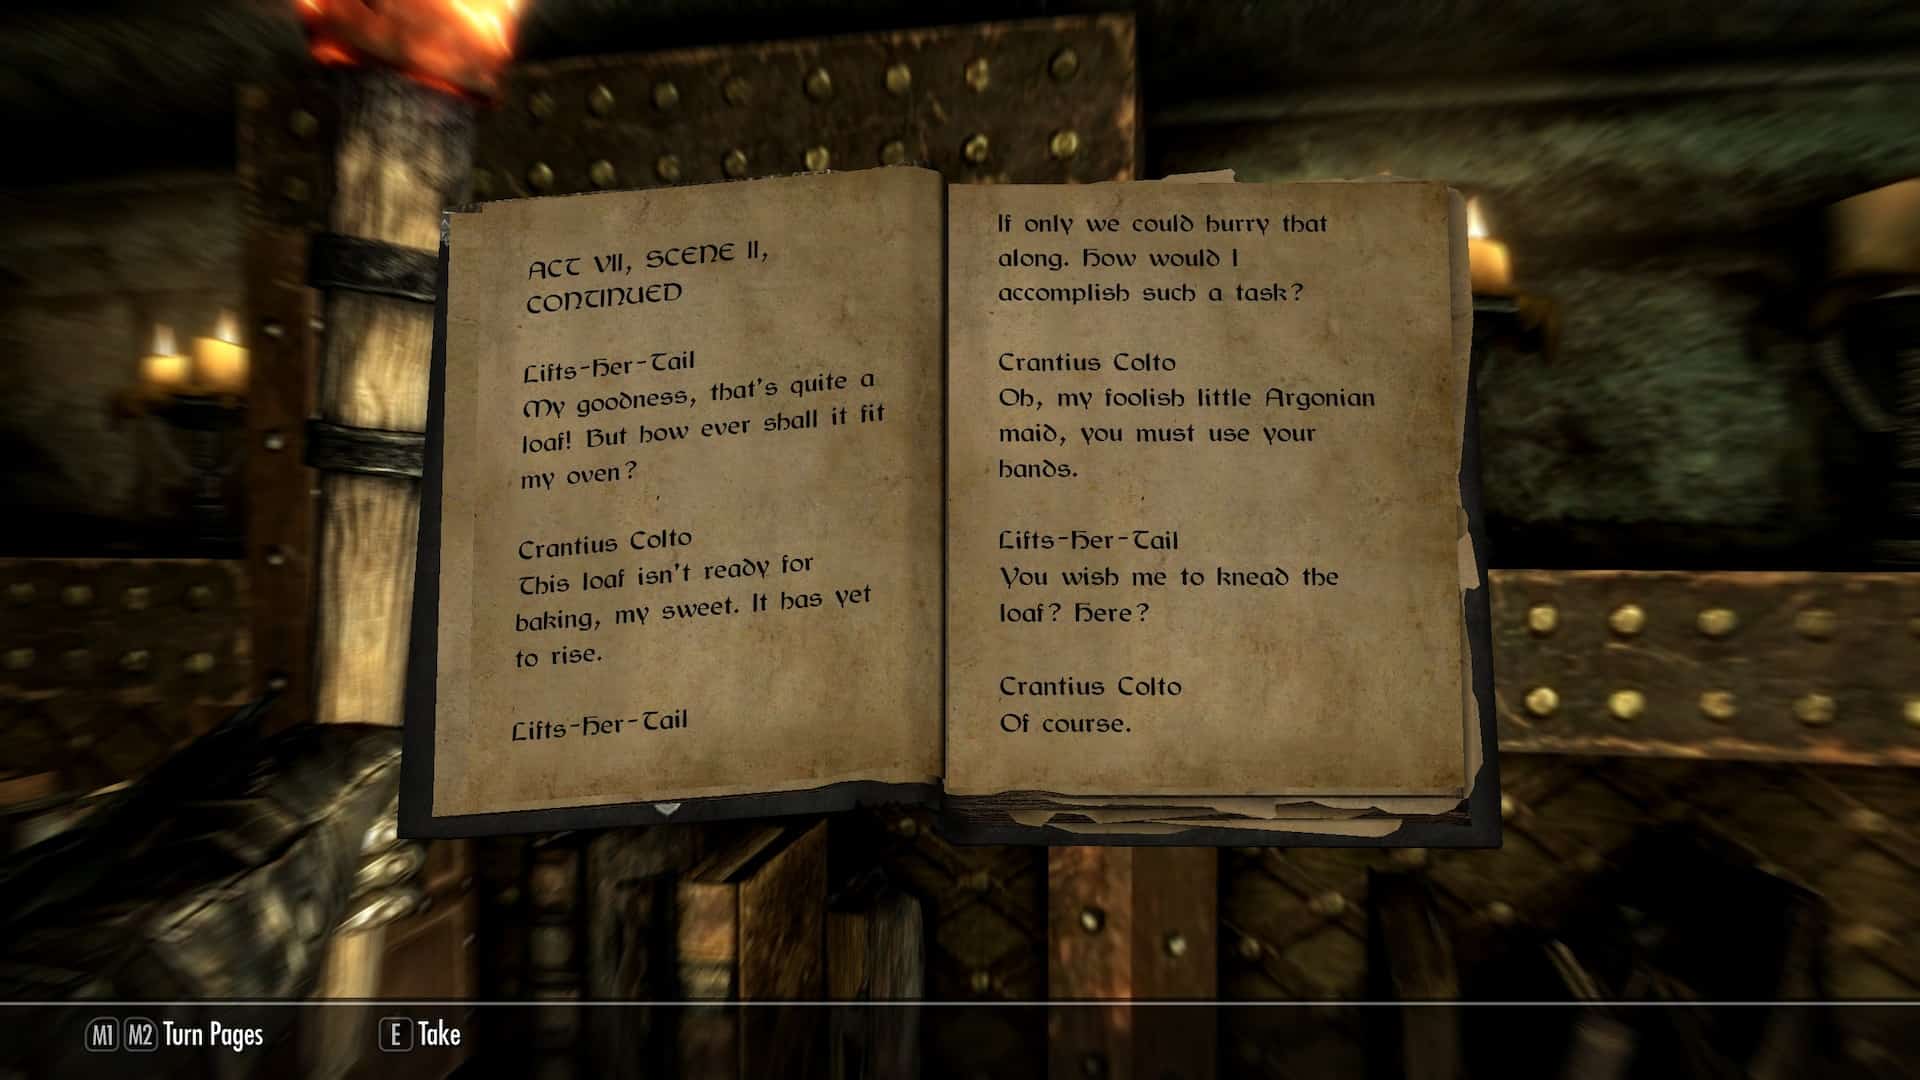 ACT VII, SCENE II,
CONTINUED
Lifts-Her-Tail
My goodness, that's quite a
loaf! But how ever shall it fit
my oven?
Crantius Colto
This loaf isn't ready for
baking, my sweet. It has yet
to rise.
Lifts-Her-Tail
If only we could hurry that
along. How would I
accomplish such a task?
Crantius Colto
Oh, my foolish little Argonian
maid, you must use your
hands.
Lifts-Her-Tail
You wish me to knead the
loaf? Here?
Crantius Colto
Of course.
M1 M2 Turn Pages E Take